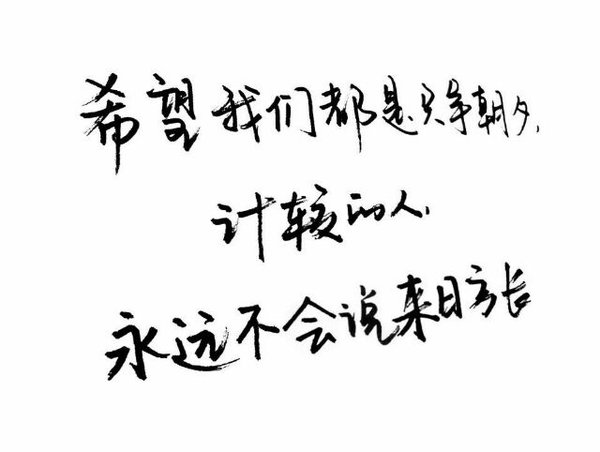 希望我们都是只争朝夕,
计较的人,
永远不会说来日方长